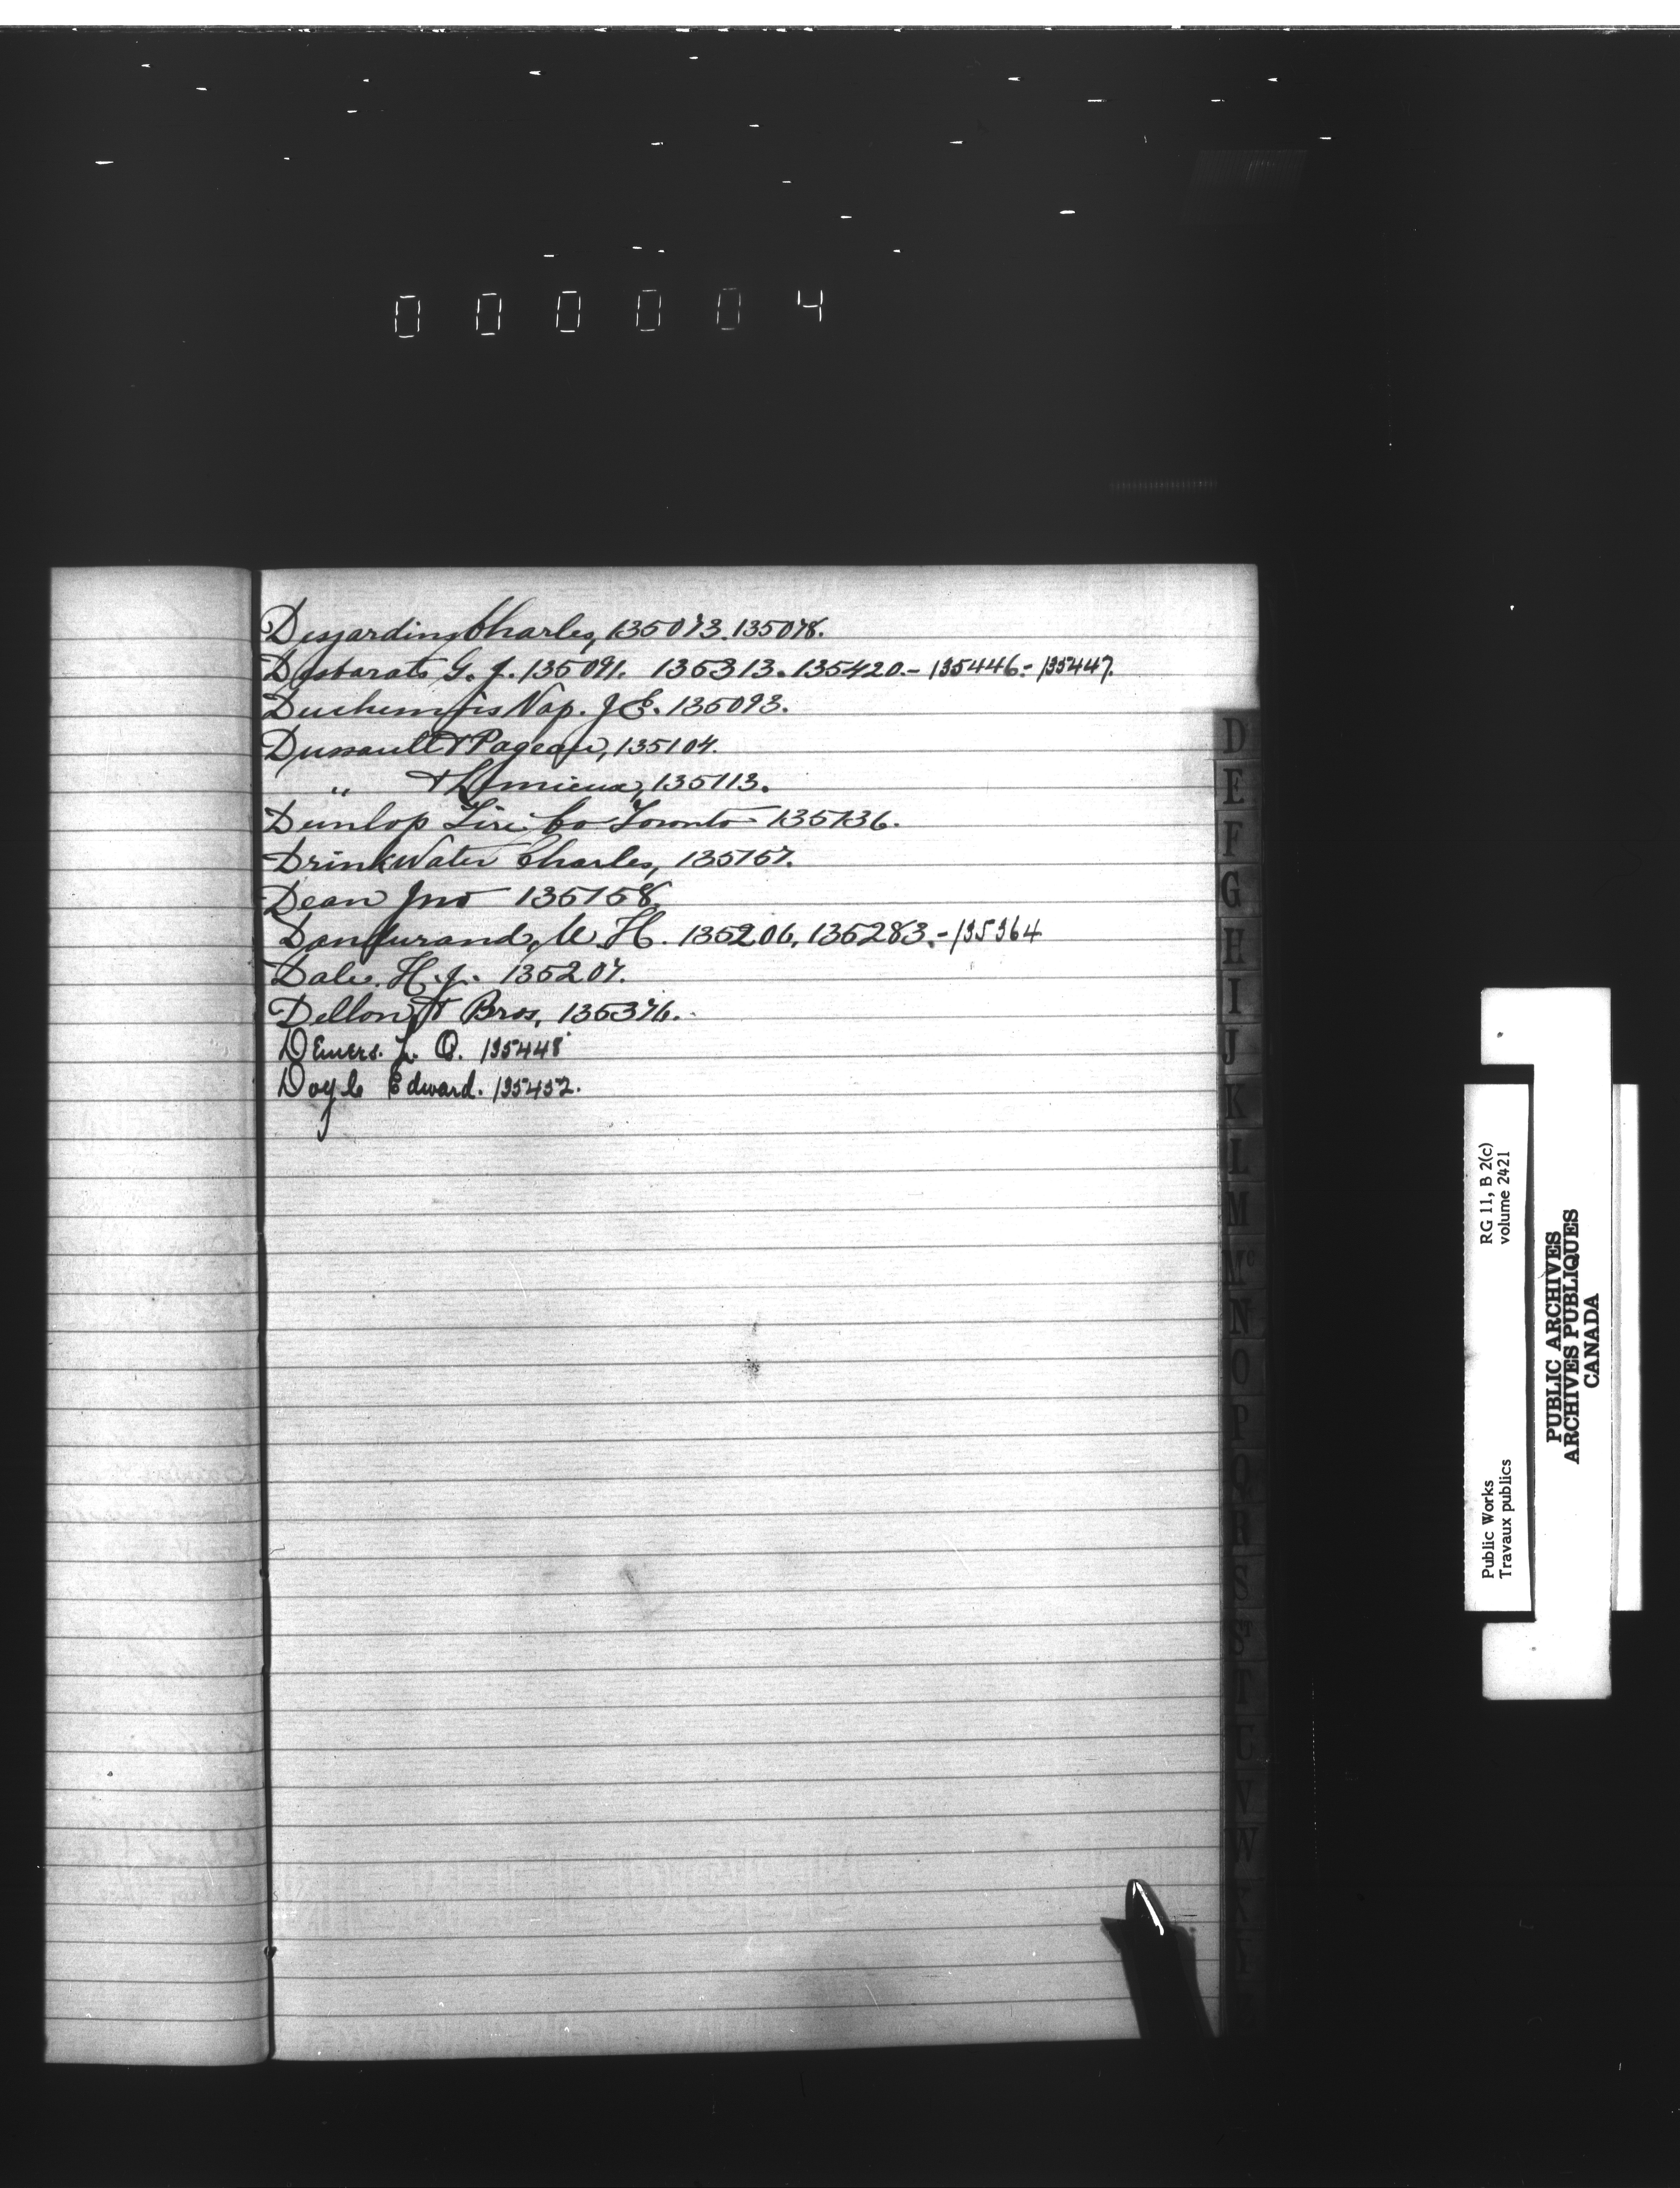 000004
Desjardins Charles, 135073. 135078.
Desbarats G. J. 135091. 135313. 135420.- 135446.- 135447.
Nap. J E. 135093.
Dussault & Pageau, 135104.
" & Lemieux, 135113.
Dunlop Tire Co Toronto 135136.
DrinkWater Charles, 135157.
Dean Jno 135158.
Dandurand, U. H. 135206, 135283.- 135364
Dale. H. J. 135207.
Bros, 135376.
Demers. L. Q. 135448
Doyle Edward. 135452.
D
E
F
G
H
I
J
K
L
M
Mc
N
O
P
Q
R
S
T
U
V
W
Public Works
Travaux publics
RG 11, B 2(c)
volume 2421
PUBLIC ARCHIVES
ARCHIVES PUBLIQUES
CANADA